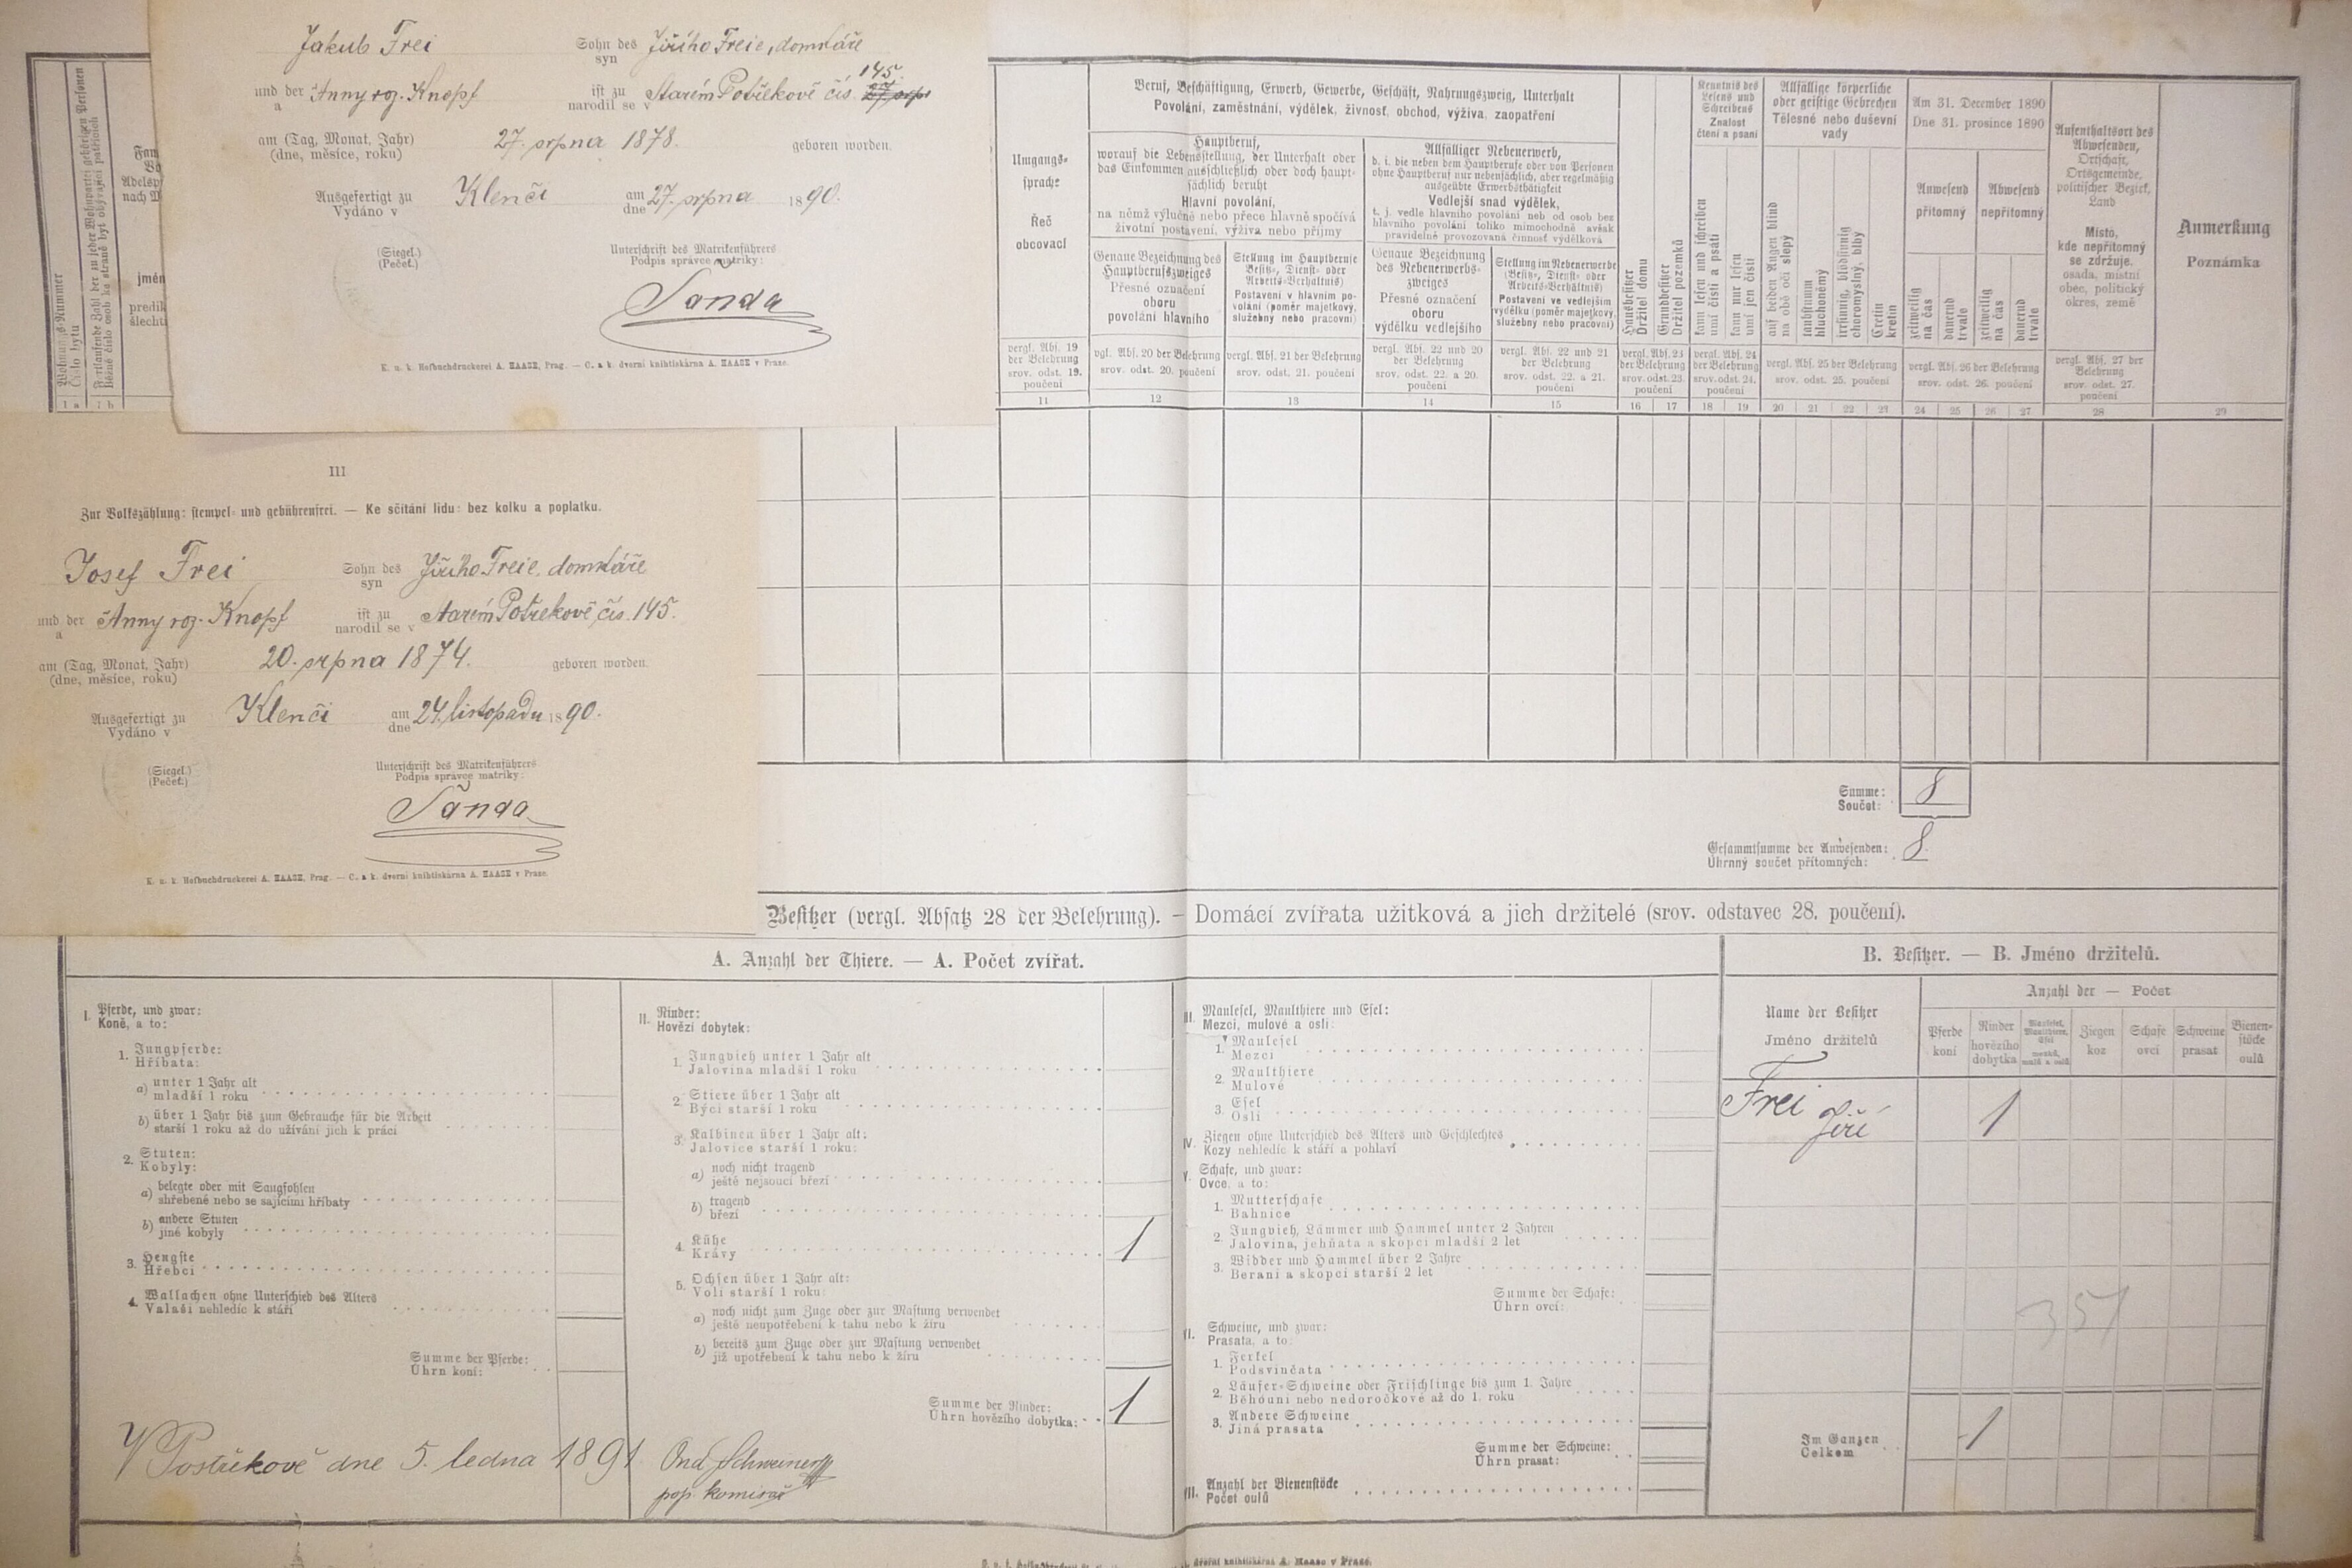 Jakub Frei Sohn des syn Jiřího Freie, domkáře
und der a Anny roz. Knopf ist zu narodil se v Starém Postřekově čís. 145
am (Tag, Monat, Jahr) 27. srpna 1878. geboren worden.
(dne, měsíce, roku)
Ausgefertigt zu Klenčí am 27. srpna 1890.
Vydáno v dne
(Siegel.) Unterschrift des Matrikenführers
(Pečeť.) Podpis správce matriky:
Šanda
K. u. k. Hofbuchdruckerei A. HAASE, Prag. — C. a k. dvorní knihtiskárna A. HAASE v Praze.
III
Zur Volkszählung: stempel- und gebührenfrei. — Ke sčítání lidu: bez kolku a poplatku.
Josef Frei Sohn des syn Jiřího Freie, domkáře
und der a Anny roz. Knopf ist zu narodil se v Starém Postřekově, čís. 145.
am (Tag, Monat, Jahr) 20. srpna 1874. geboren worden.
(dne, měsíce, roku)
Ausgefertigt zu Klenčí am 24. listopadu 1890.
Vydáno v dne
(Siegel.) Unterschrift des Matrikenführers
(Pečeť.) Podpis správce matriky:
Šanda
K. u. k. Hofbuchdruckerei A. HAASE, Prag. — C. a k. dvorní knihtiskárna A. HAASE v Praze.
Wohnungs-Nummer
Číslo bytu
Fortlaufende Zahl der zu jeder Wohnpartei gehörigen Personen
1 a 1 b
Umgangs-
sprache
Řeč
obcovací
vergl. Abs. 19
der Belehrung
srov. odst. 19.
poučení
11
Beruf, Beschäftigung, Erwerb, Gewerbe, Geschäft, Nahrungszweig, Unterhalt
Povolání, zaměstnání, výdělek, živnosť, obchod, výživa, zaopatření
Hauptberuf,
worauf die Lebensstellung, der Unterhalt oder
das Einkommen ausschließlich oder doch haupt-
sächlich beruht
Hlavní povolání,
na němž výlučně nebo přece hlavně spočívá
životní postavení, výživa nebo příjmy
Genaue Bezeichnung des
Hauptberufszweiges
Přesné označení
oboru
povolání hlavního
vgl. Abs. 20 der Belehrung
srov. odst. 20. poučení
12
Stellung im Hauptberufe
(Besitz-, Dienst- oder
Arbeits-Verhältnis)
Postavení v hlavním po-
volání (poměr majetkový,
služebný nebo pracovní)
vergl. Abs. 21 der Belehrung
srov. odst. 21. poučení
13
Allfälliger Nebenerwerb,
d. i. die neben dem Hauptberufe oder von Personen
ohne Hauptberuf nur nebensächlich, aber regelmäßig
ausgeübte Erwerbsthätigkeit
Vedlejší snad výdělek,
t. j. vedle hlavního povolání neb od osob bez
hlavního povolání toliko mimochodně avšak
pravidelně provozovaná činnosť výdělková
Genaue Bezeichnung
des Nebenerwerbs-
zweiges
Přesné označení
oboru
výdělku vedlejšího
vergl. Abs. 22 und 20
der Belehrung
srov. odst. 22. a 20.
poučení
14
Stellung im Nebenerwerbe
(Besitz-, Dienst- oder
Arbeits-Verhältnis)
Postavení ve vedlejším
výdělku (poměr majetkový,
služebný nebo pracovní)
vergl. Abs. 22 und 21
der Belehrung
srov. odst. 22. a 21.
poučení
15
Hausbesitzer
Držitel domu
Grundbesitzer
Držitel pozemků
vergl. Abs. 23
der Belehrung
srov. odst. 23.
poučení
16 17
Kenntnis des
Lesens und
Schreibens
Znalost
čtení a psaní
kann lesen und schreiben
umí čísti a psáti
kann nur lesen
umí jen čísti
vergl. Abs. 24
der Belehrung
srov. odst. 24.
poučení
18 19
Allfällige körperliche
oder geistige Gebrechen
Tělesné nebo duševní
vady
auf beiden Augen blind
na obě oči slepý
taubstumm
hluchoněmý
irrsinnig, blödsinnig
choromyslný, blbý
Cretin
kretin
vergl. Abs. 25 der Belehrung
srov. odst. 25. poučení
20 21 22 23
Am 31. December 1890
Dne 31. prosince 1890
Anwesend
přítomný
Abwesend
nepřítomný
zeitweilig
na čas
dauernd
trvale
zeitweilig
na čas
dauernd
trvale
vergl. Abs. 26 der Belehrung
srov. odst. 26. poučení
24 25 26 27
Aufenthaltsort des
Abwesenden,
Ortschaft,
Ortsgemeinde,
politischer Bezirk,
Land
Místo,
kde nepřítomný
se zdržuje,
osada, místní
obec, politický
okres, země
vergl. Abs. 27 der
Belehrung
srov. odst. 27.
poučení
28
Anmerkung
Poznámka
29
Summe:
Součet: 8
Gesammtsumme der Anwesenden:
Úhrnný součet přítomných: 8
Besitzer (vergl. Absatz 28 der Belehrung). — Domácí zvířata užitková a jich držitelé (srov. odstavec 28. poučení).
A. Anzahl der Thiere. — A. Počet zvířat.
I. Pferde, und zwar:
Koně, a to:
1. Jungpferde:
Hříbata:
a) unter 1 Jahr alt
mladší 1 roku
b) über 1 Jahr bis zum Gebrauche für die Arbeit
starší 1 roku až do užívání jich k práci
2. Stuten:
Kobyly:
a) belegte oder mit Saugfohlen
shřebené nebo se sajícími hříbaty
b) andere Stuten
jiné kobyly
3. Hengste
Hřebci
4. Wallachen ohne Unterschied des Alters
Valaši nehledíc k stáří
Summe der Pferde:
Úhrn koní:
II. Rinder:
Hovězí dobytek:
1. Jungvieh unter 1 Jahr alt
Jalovina mladší 1 roku
2. Stiere über 1 Jahr alt
Býci starší 1 roku
3. Kalbinen über 1 Jahr alt:
Jalovice starší 1 roku:
a) noch nicht tragend
ještě nejsoucí březí
b) tragend
březí
4. Kühe
Krávy 1
5. Ochsen über 1 Jahr alt:
Voli starší 1 roku:
a) noch nicht zum Zuge oder zur Mastung verwendet
ještě neupotřebení k tahu nebo k žíru
b) bereits zum Zuge oder zur Mastung verwendet
již upotřebení k tahu nebo k žíru
Summe der Rinder:
Úhrn hovězího dobytka: 1
III. Maulesel, Maulthiere und Esel:
Mezci, mulové a osli:
1. Maulesel
Mezci
2. Maulthiere
Mulové
3. Esel
Osli
IV. Ziegen ohne Unterschied des Alters und Geschlechtes
Kozy nehledíc k stáří a pohlaví
V. Schafe, und zwar:
Ovce, a to:
1. Mutterschafe
Bahnice
2. Jungvieh, Lämmer und Hammel unter 2 Jahren
Jalovina, jehňata a skopci mladší 2 let
3. Widder und Hammel über 2 Jahre
Berani a skopci starší 2 let
Summe der Schafe:
Úhrn ovcí:
VI. Schweine, und zwar:
Prasata, a to:
1. Ferkel
Podsvinčata
2. Läufer-Schweine oder Frischlinge bis zum 1. Jahre
Běhouni nebo nedoročkové až do 1. roku
3. Andere Schweine
Jiná prasata
Summe der Schweine:
Úhrn prasat:
VII. Anzahl der Bienenstöcke
Počet oulů
B. Besitzer. — B. Jméno držitelů.
Name der Besitzer
Jméno držitelů
Anzahl der — Počet
Pferde
koní
Rinder
hovězího
dobytka
Maulesel,
Maulthiere,
Esel
mezků,
mulů a oslů
Ziegen
koz
Schafe
ovcí
Schweine
prasat
Bienen-
stöcke
oulů
Frei Jiří 1
351
Im Ganzen
Celkem 1
V Postřekově dne 5. ledna 1891
Ond. Schweiner
pop. komisař